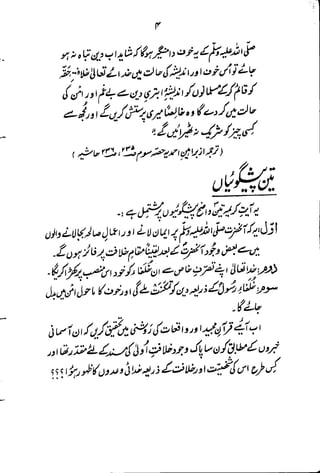 ۴
صلی اللہ علیہ وسلم کے یہ خوف دامنگیر ہوگا کہ شاید اب دین تباہ نہ ہو
جائے تو اُس خوف اور اندیشہ کی حالت میں خدائے تعالیٰ خلافتِ حقہ
کو قائم کر کے مسلمانوں کو اندیشہ ابتری دین سے بے غم اور امن کی
حالت میں کر دے گا وہ خالصاً میری پرستش کریں گے اور مجھ سے
کسی چیز کو شریک نہ ٹھہرائیں گے۔"
(ترجمہ از براہین احمدیہ حصہ سوم ۲۳۵، ۲۳۶ حاشیہ)
تین پیشگوئیاں
یہ آیت کریمہ تین واضح پیشگوئیوں پر مشتمل ہے :۔
اوّل یہ کہ آنحضرت صلی اللہ علیہ وسلم پر ایمان لانے اور اعمال صالحہ بجا لانے والوں
میں سے بعض وجود آنحضرت کے بعد یقیناً مقامِ خلافت پر فائز ہوں گے۔
دوم خدا تعالیٰ اپنے تصرفِ خاص سے ان خلفاء کو خود اس منصب پر کھڑا کرے گا۔
سوم خلفاءِ رسول کے ذریعہ دین کو تمکنت ملے گی اور خوف کا ماحول امن میں بدل
جائے گا۔
اب آئیے قرآن مجید اور واقعات کی روشنی میں تحقیق کریں کہ ان آسمانی
خبروں کے مطابق کون سا پاک وجود خلافتِ اُولیٰ کی مسند کے لئے مقدر تھا اور
کس طرح اس کی شخصیت اور خلافت کے ذریعہ خدائی وعدوں کا ظہور ہوا؟؟؟